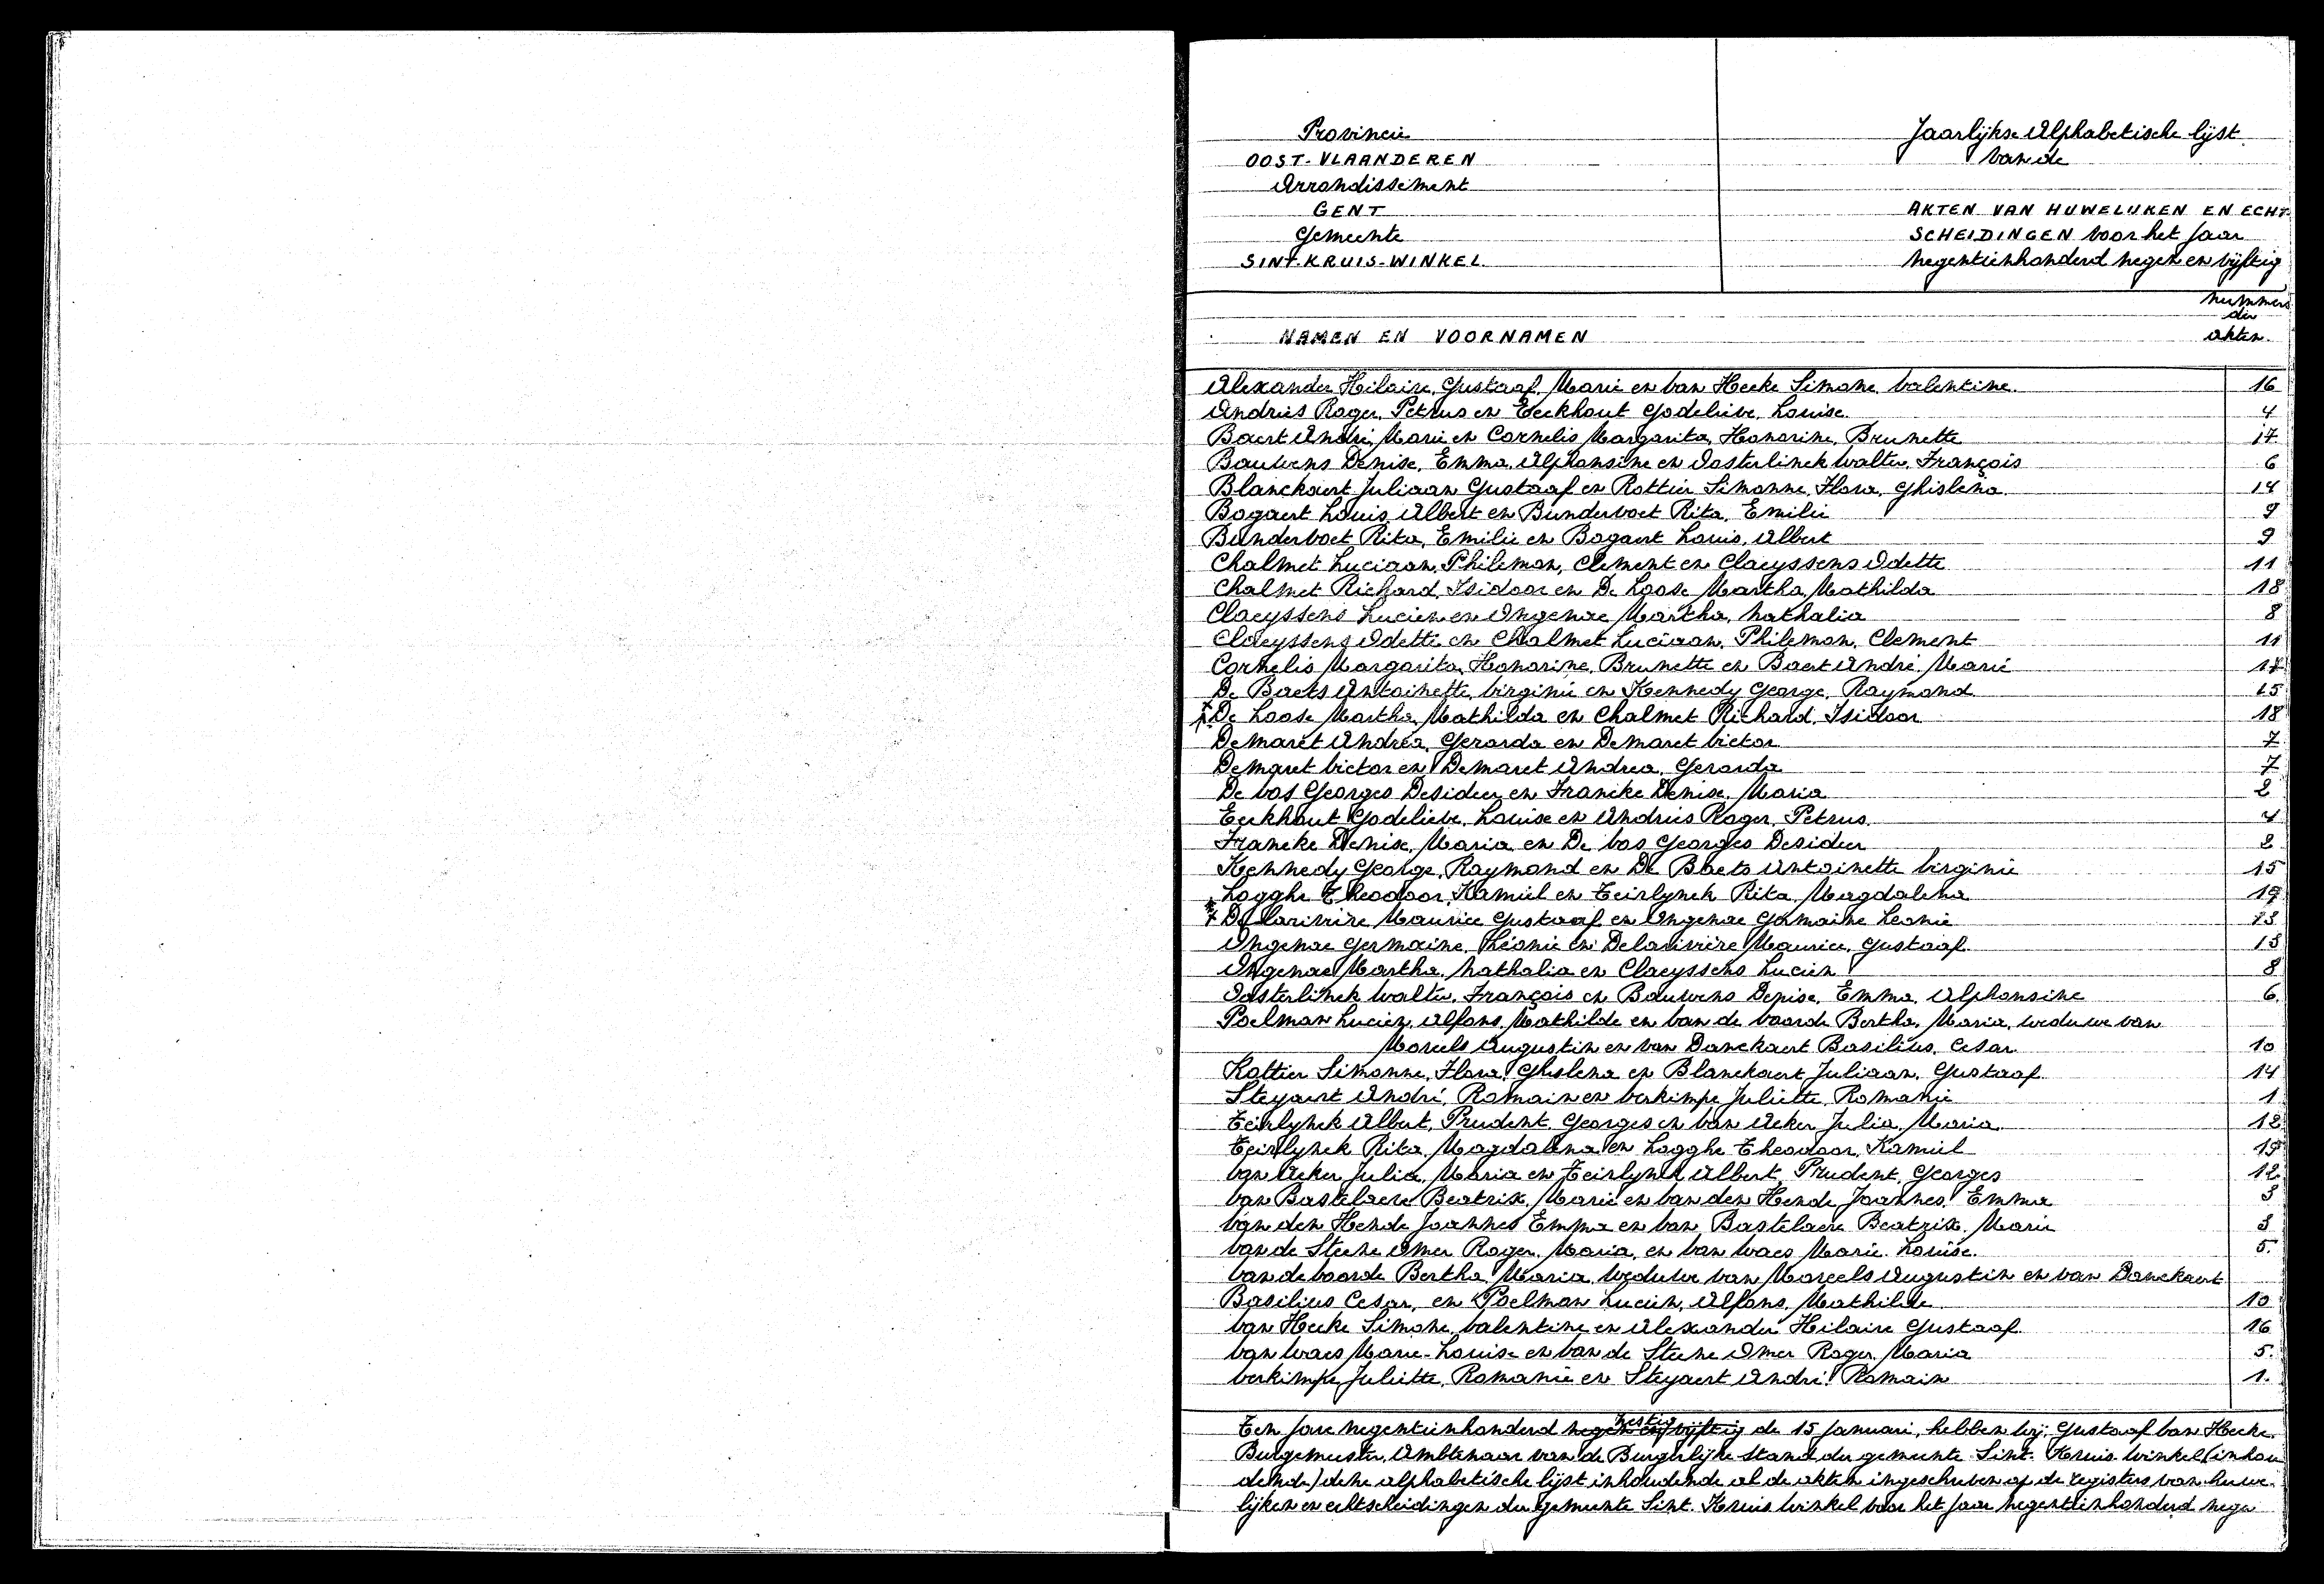 Provincie
OOST-VLAANDEREN
Arrondissement
GENT
Gemeente
SINT-KRUIS-WINKEL
Jaarlijkse Alphabetische lijst
van de
AKTEN VAN HUWELIJKEN EN ECHT-
SCHEIDINGEN voor het jaar
negentienhonderd negen en vijftig
NAMEN EN VOORNAMEN
nummers
der
akten.
Alexander Hilaire, Gustaaf, Marie en Van Hecke Simone Valentine 16
Andries Roger, Petrus en Eeckhout Godelieve, Louise 4
Baert André, Marie en Cornelis Margarita, Honorine, Brunette 17
Bauwens Denise, Emma, Alphonsine en Oosterlinck Walter, François 6
Blanckaert Juliaan Gustaaf en Rottier Simonne, Flora, Ghislena 14
Bogaert Louis, Albert en Bundervoet Rita, Emilie 9
Bundervoet Rita, Emilie en Bogaert Louis, Albert 9
Chalmet Luciaan, Philemon, Clement en Claeyssens Odette 11
Chalmet Richard, Isidoor en De Loose Martha, Mathilda 18
Claeyssens Lucien en Ongenae Martha, Nathalia 8
Claeyssens Odette en Chalmet Luciaan, Philemon, Clement 11
Cornelis Margarita, Honorine, Brunette en Baert André, Marie 17
De Baets Antoinette, Virginie en Kennedy George, Raymond 15
De Loose Martha, Mathilda en Chalmet Richard, Isidoor 18
Demaret Andrea, Gerarda en Demaret Victor 7
Demaret Victor en Demaret Andrea, Gerarda 7
De Vos Georges Desideer en Francke Denise, Maria 2
Eeckhout Godelieve, Louise en Andries Roger, Petrus. 4
Francke Denise, Maria en De Vos Georges Desideer 2
Kennedy George, Raymond en De Baets Antoinette Virginie 15
Logghe Theodoor, Kamiel en Teirlynck Rita, Magdalena 19
Delarivière Maurice Gustaaf en Ongenae Germaine Leonie 13
Ongenae Germaine, Léonie en Delarivière Maurice, Gustaaf 13
Ongenae Martha, Nathalia en Claeyssens Lucien 8
Oosterlinck Walter, François en Bauwens Denise, Emma, Alphonsine 6.
Poelman Lucien, Alfons, Mathilde en Van de Voorde Bertha, Maria, weduwe van
Moreels Augustin en van Danckaert Basilius, Cesar 10
Rottier Simonne, Flora, Ghislena en Blanckaert Juliaan, Gustaaf 14
Steyaert André, Romain en Verkimpe Juliette, Romanie 1
Teirlynck Albert, Prudent, Georges en Van Acker Julia, Maria 12
Teirlynck Rita, Magdalena en Logghe Theodoor, Kamiel 19
Van Acker Julia, Maria en Teirlynck Albert, Prudent, Georges 12
Van Bastelaere Beatrix, Marie en Van den Hende Joannes, Emma 3
Van den Hende Joannes Emma en Van Bastelaere Beatrix, Marie 3
Van de Steene Omer Roger, Maria, en Van Waes Marie-Louise. 5.
Van de Voorde Bertha, Maria, weduwe van Moreels Augustin en van Danckaert
Basilius Cesar, en Poelman Lucien, Alfons, Mathilde 10
Van Hecke Simone, Valentine en Alexander Hilaire Gustaaf 16
Van Waes Marie-Louise en Van de Steene Omer Roger, Maria 5.
Verkimpe Juliette, Romanie en Steyaert André, Romain 1.
Ten jare negentienhonderd negen en vijftig zestig de 15 januari, hebben wij, Gustaaf Van Hecke,
Burgemeester, Ambtenaar van de Burgerlijke stand der gemeente Sint-Kruis-Winkel (inhou
dende) deze alphabetische lijst inhoudende al de akten ingeschreven op de registers van huwe-
lijken en echtscheidingen der gemeente Sint-Kruis Winkel voor het jaar negentienhonderd nege